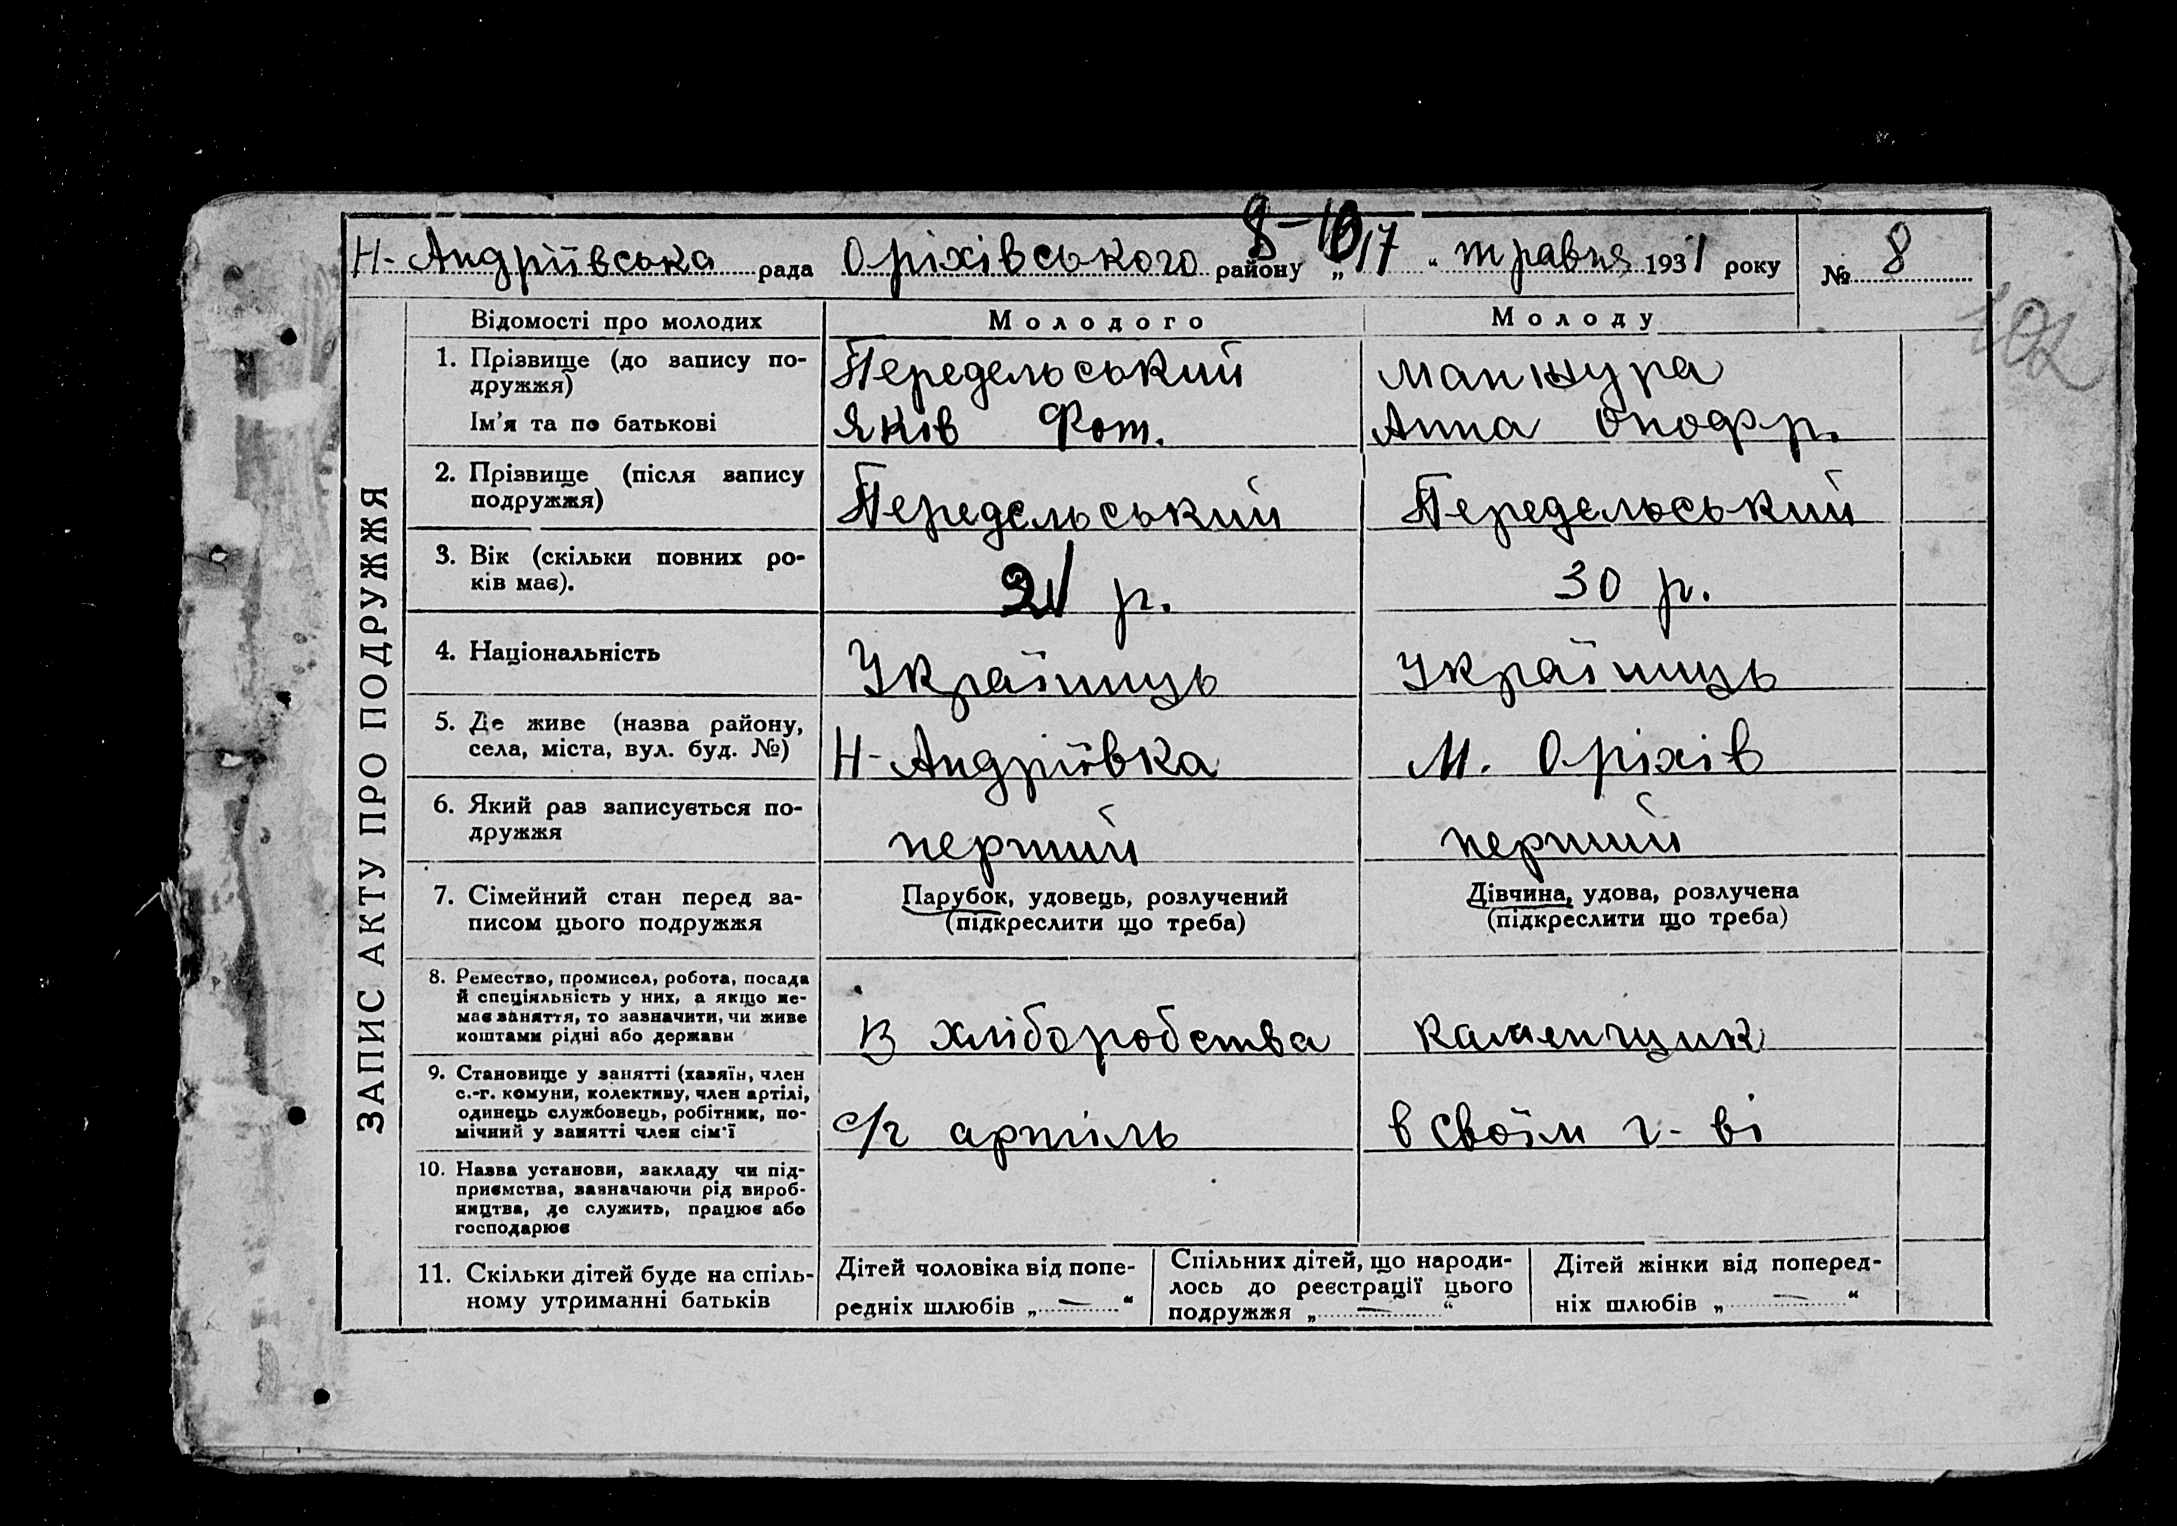 8-16
Н-Андріївська рада Оріхівського району „17“ травня 1931 року № 8
102
ЗАПИС АКТУ ПРО ПОДРУЖЖЯ
Відомості про молодих Молодого Молоду
1. Прізвище (до запису по-
дружжя)
Передельський манжура
Ім'я та по батькові Яків Фот. Анна онофр.
2. Прізвище (після запису
подружжя)
Передельський Передельський
3. Вік (скільки повних ро-
ків має).
р. 30 р.
4. Національність Українець Українець
5. Де живе (назва району,
села, міста, вул. буд. №)
Н-Андріївка М. Оріхів
6. Який раз записується по-
дружжя
перший перший
7. Сімейний стан перед за-
писом цього подружжя
Парубок, удовець, розлучений
(підкреслити що треба)
Дівчина, удова, розлучена
(підкреслити що треба)
8. Ремество, промисел, робота, посада
й спеціяльність у них, а якщо не-
має заняття, то зазначити, чи живе
коштами рідні або держави
В хліборобства каменщик
9. Становище у занятті (хазяїн, член
с.-г. комуни, колективу, член артілі,
одинець службовець, робітник, по-
мічний у занятті член сім'ї
с/г артіль в своїм г-ві
10. Назва установи, закладу чи під-
приємства, зазначаючи рід вироб-
ництва, де служить, працює або
господарює
11. Скільки дітей буде на спіль-
ному утриманні батьків
Дітей чоловіка від попе-
редніх шлюбів „—“
Спільних дітей, що народи-
лось до реєстрації цього
подружжя „—“
Дітей жінки від поперед-
ніх шлюбів „—“